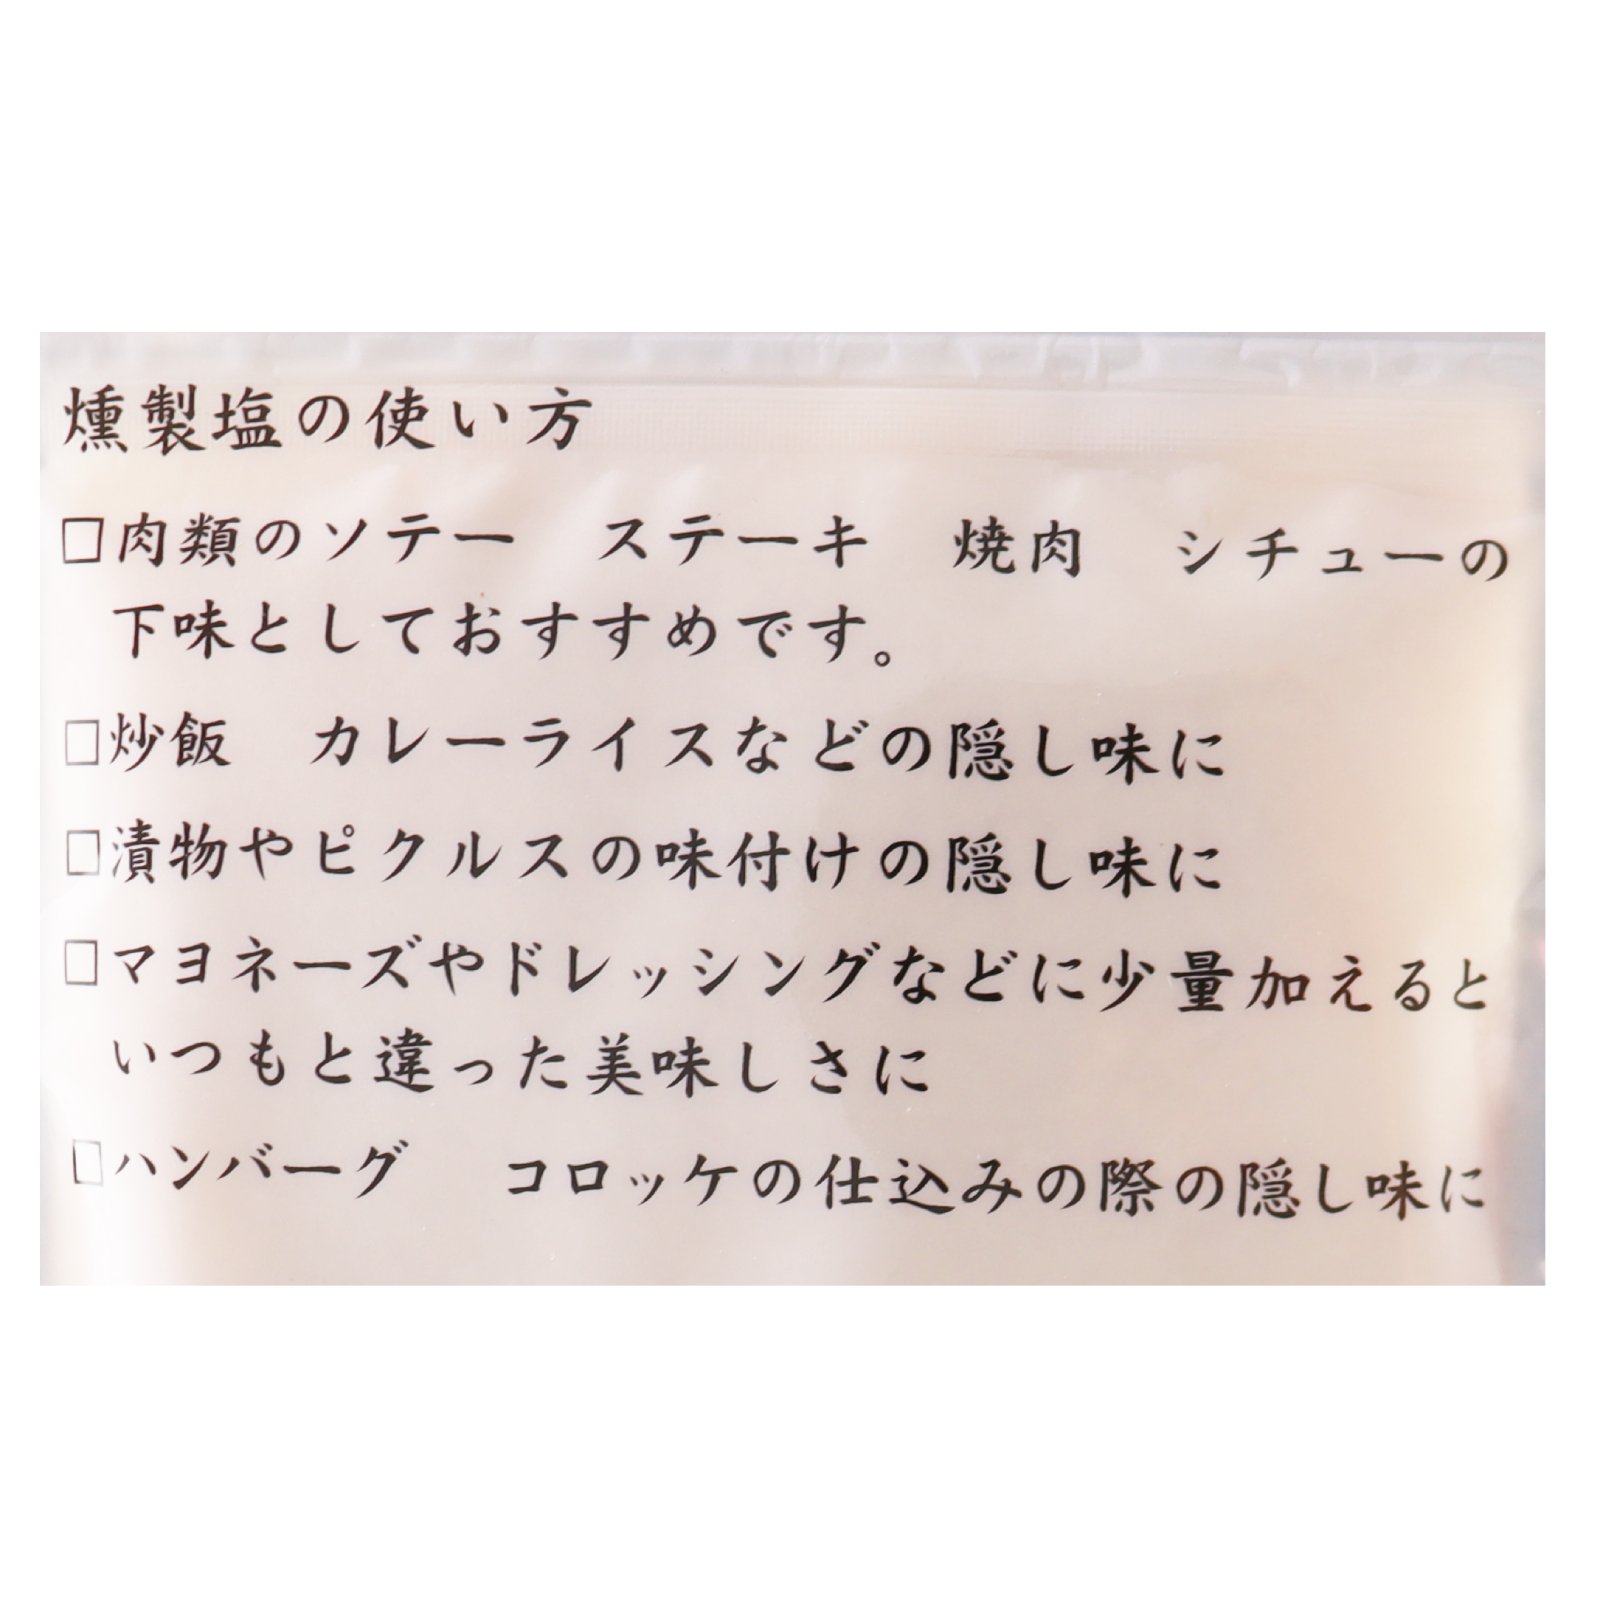 燻製塩の使い方
□肉類のソテー　ステーキ　焼肉　シチューの
下味としておすすめです。
□炒飯　カレーライスなどの隠し味に
□漬物やピクルスの味付けの隠し味に
□マヨネーズやドレッシングなどに少量加えると
いつもと違った美味しさに
□ハンバーグ　コロッケの仕込みの際の隠し味に